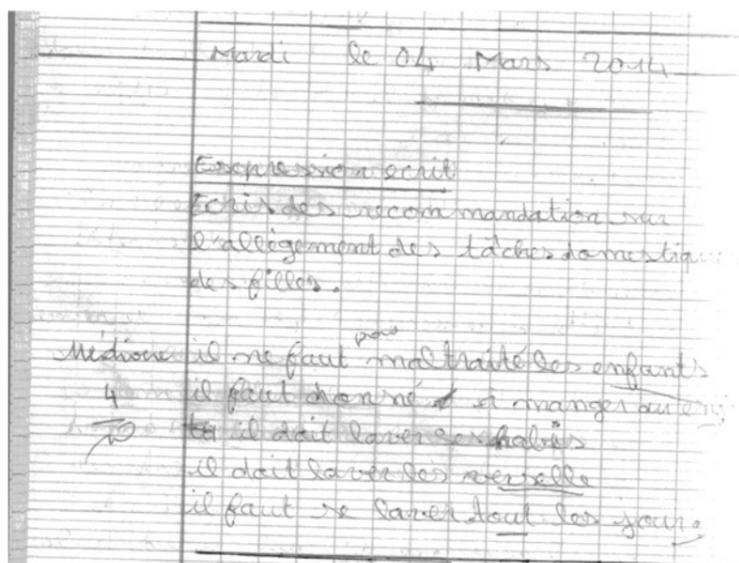 Mardi le 04 Mars 2014
Expression ecrit
Ecris des recommandation sur
l'allègement des tâches domestiq
des filles.
pas
Médiocre il ne faut maltraité les enfants
4 il faut donné à manger au en
10 il doit laver ses habis
il doit laver les verselle
il faut se laver tout les jour.